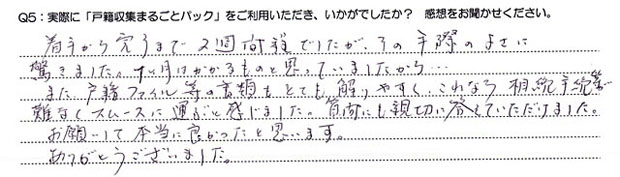 Q5：実際に「戸籍収集まるごとパック」をご利用いただき、いかがでしたか？ 感想をお聞かせください。
着手から完了まで2週間程でしたが、その手際のよさに
驚きました。1ヶ月はかかるものと思っていましたから…
また、戸籍ファイル等の書類もとても解りやすく、これなら相続手続等が
難なくスムースに運ぶと感じました。質問にも親切に答えていただけました。
お願いして本当に良かったと思います。
ありがとうございました。